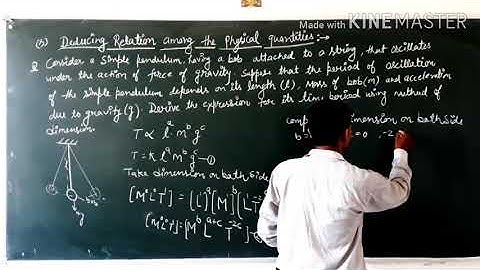 Made with KINEMASTER
(3) Deducing Relation among the Physical quantities:→
Q Consider a simple pendulum, having a bob attached to a string, that oscillates
under the action of force of gravity. Suppose that the period of oscillation
of the simple pendulum depends on its length (l), mass of bob (m) and acceleration
due to gravity (g). Derive the expression for its time period using method of
dimension.
T ∝ l^a m^b g^c
T = K l^a m^b g^c —①
Take dimension on both side
[M⁰L⁰T¹] = [L¹]^a [M]^b [L¹T⁻²]^c
[M⁰L⁰T¹] = [M^b L^{a+c} T^{-2c}]
comp dimension on both side
b= = 0 , -2
mg